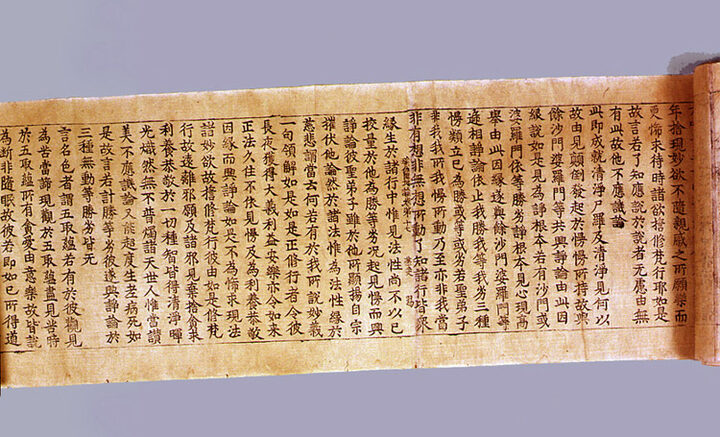 年捨現妙欲不隨親戚之所願樂而
更悕求待時諸欲擔修梵行耶如是
故言若了知應說於說者无慮由無
有此故他不應譏論
此即成就清淨尸羅及清淨見何以
故由見顛倒發起於憍慢所持故與
餘沙門婆羅門等共興諍論由此因
緣說如是見為諍根本若有沙門或
婆羅門依等勝劣諍根本見心現高
舉由此因緣遂與餘沙門婆羅門等
遞相諍論依止我勝我等我劣三種
慢類立已為勝或等或劣若聖弟子
非我我所我慢所動乃至亦非我當
非有想非無想所動了知諸行皆衆
緣生於諸行中惟見法性尚不以已
挍量於他為勝等劣况起見慢而興
諍論彼聖弟子雖於他所顯揚自宗
摧伏他論然於諸法惟為法性緣於
慈悲謂當云何若有於我所說妙義
一句領解如是如是正修行者令彼
長夜獲得大義利益安樂亦令如來
正法久住不依見慢及為利養恭敬
因緣而興諍論如是不為悕求現法
諸妙欲故擔修梵行彼由如是修梵
行故遠離邪願及諸邪見棄捨貪求
利養恭敬於一切種智皆得清淨暉
光熾然無不普燭諸天世人惟當讚
美不應譏論又能超度生老病死如
是故言若計勝等劣彼遂興諍論於
三種無動等勝劣皆无
言名色者謂五取蘊若有於彼觀見
為苦當諦現觀於五取蘊盡見當時
於五取蘊所有貪愛由意樂故皆說
為斷非隨眠故彼若即如已所得道